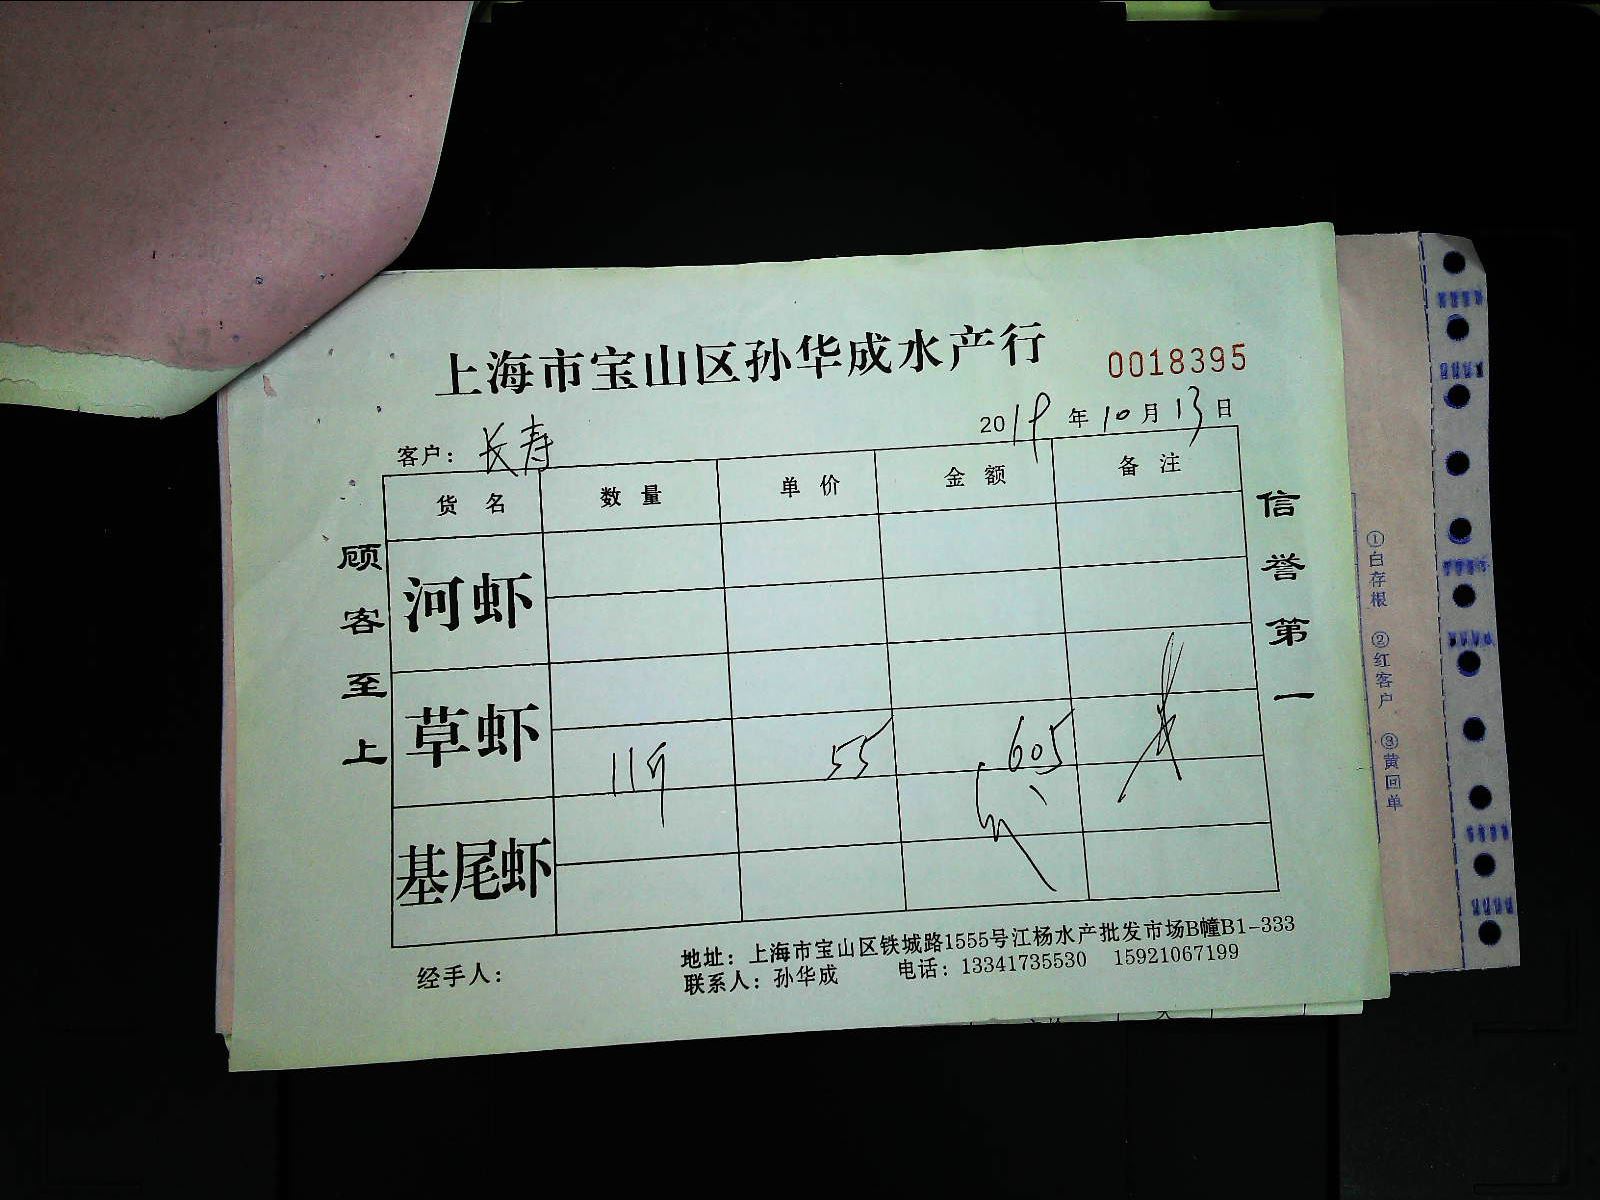 上海市宝山区孙华成水产行 0018395
客户： 长寿 2019 年 10 月 13 日
货名 数量 单价 金额 备注
河虾
草虾 11斤 55 605
基尾虾
顾客至上
信誉第一
地址：上海市宝山区铁城路1555号江杨水产批发市场B幢B1-333
经手人： 联系人：孙华成 电话：13341735530 15921067199
①白存根 ②红客户 ③黄回单